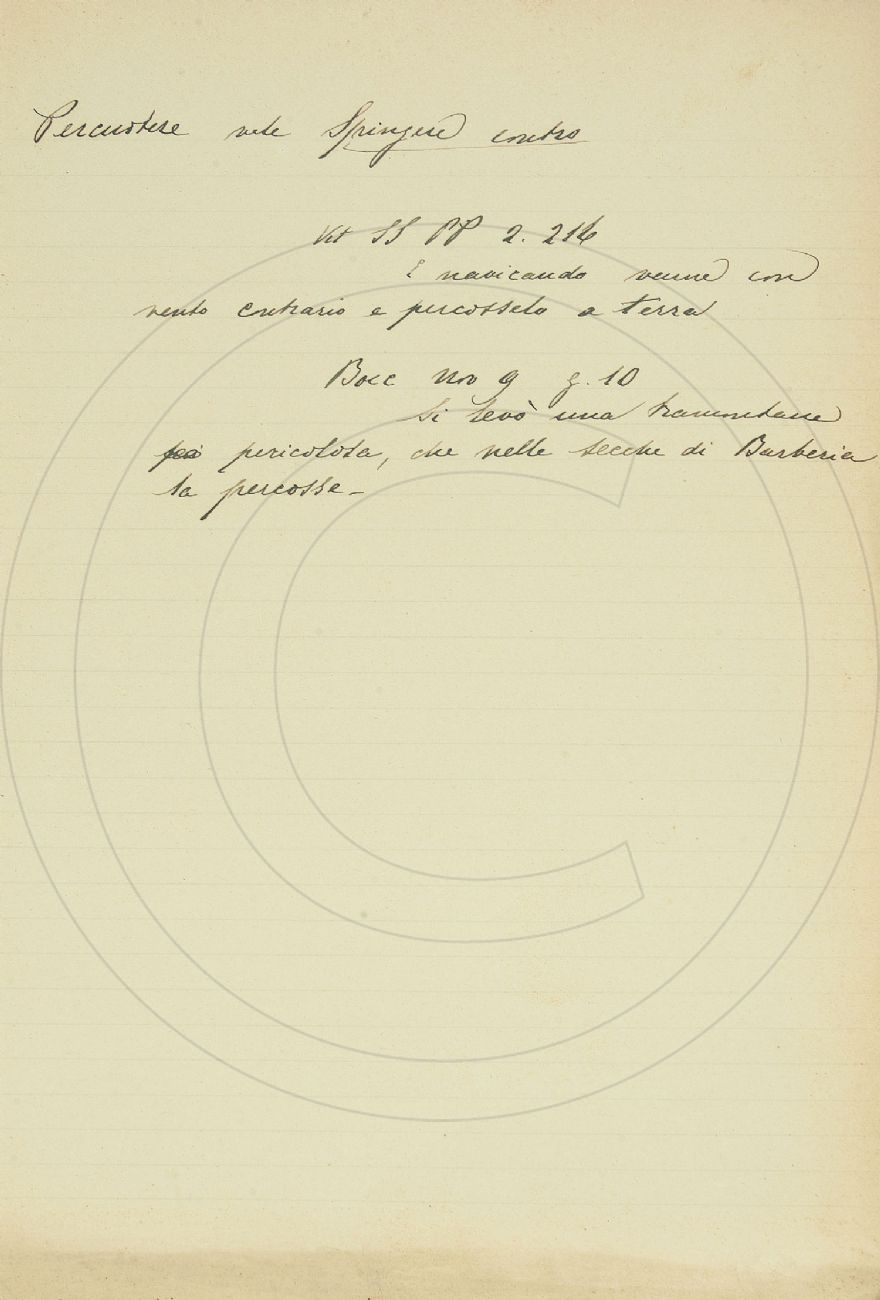 Percuotere vale Spingere contro
Vit SS PP 2. 214
E navicando venne con
vento contrario e percosselo a terra
Bocc Nov 9 g. 10
Si levò una tramontana
pericolosa, che nelle secche di Barberia
la percosse –